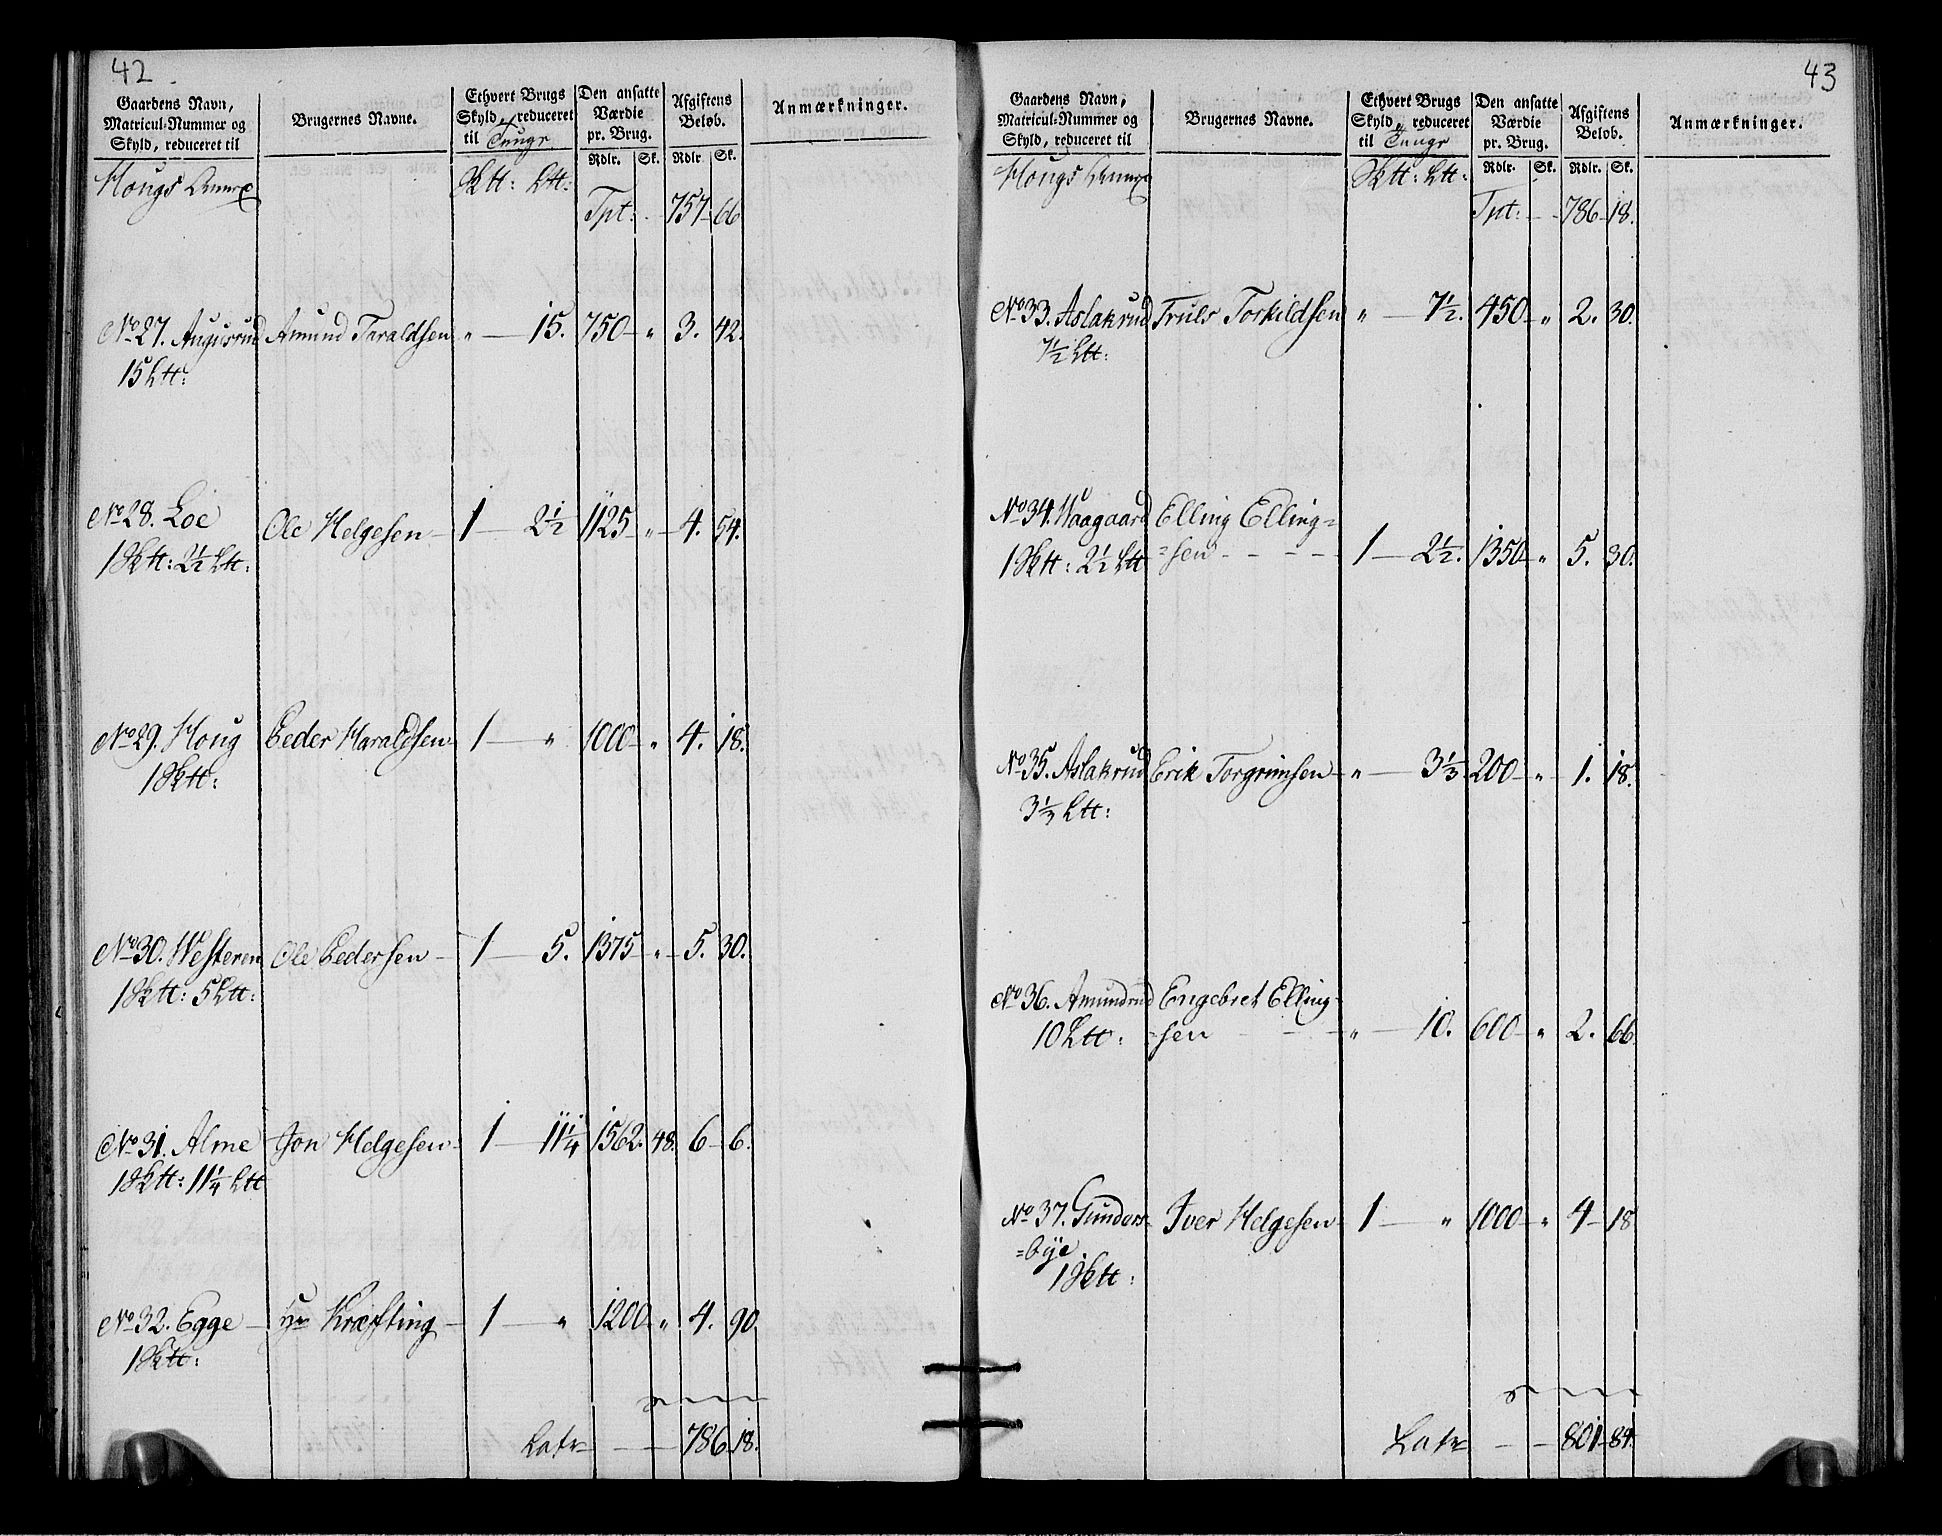 42
Gaardens Navn,
Matricul-Nummer og
Skyld, reduceret til
Brugernes Navne.
Ethvert Brugs
Skyld, reduceret
til Tunge
Den ansatte
Værdie
pr. Brug.
Rdlr. Sk.
Afgiftens
Beløb.
Rdlr. Sk.
Anmærkninger.
Hougs Annex Sktt: Ltt:
Tpt: 757 66
No 27. Augusrud Amund Taraldsen „ 15. 750 „ 3. 42.
15 Ltt:
No 28. Loe Ole Helgesen 1 2½ 1125 „ 4. 54.
1 Sktt: 2½ Ltt:
No 29. Houg Peder Haraldsen 1 „ 1000 „ 4. 18.
1 Sktt:
No 30. Westeren Ole Pedersen 1 5. 1375 „ 5. 30.
1 Sktt: 5 Ltt:
No 31. Alme Jon Helgesen 1 11¼ 1562. 48. 6 6.
1 Sktt: 11¼ Ltt
No 32. Egge Hr Kræfting 1 „ 1200 „ 4. 90
1 Sktt:
Latr 786 18.
43
Gaardens Navn,
Matricul-Nummer og
Skyld, reduceret til
Brugernes Navne.
Ethvert Brugs
Skyld, reduceret
til Tunge
Den ansatte
Værdie
pr. Brug.
Rdlr. Sk.
Afgiftens
Beløb.
Rdlr. Sk.
Anmærkninger.
Hougs Annex Sktt: Ltt:
Tpt: 786 18.
No 33. Aslakrud Truls Torkildsen „ 7½. 450 „ 2. 30.
7½ Ltt:
No 34. Waagaard Elling Elling=
1 Sktt: 2½ Ltt =sen 1 2½. 1350 „ 5. 30.
No 35. Aslakrud Erik Torgrimsen „ 3⅓ 200 „ 1. 18.
3⅓ Ltt:
No 36. Amundrud Engebret Elling-
10 Ltt: -sen „ 10. 600 „ 2. 66
No 37. Gunders- Iver Helgesen 1 „ 1000 „ 4 18
=bye
1 Sktt:
Latr 801 84.